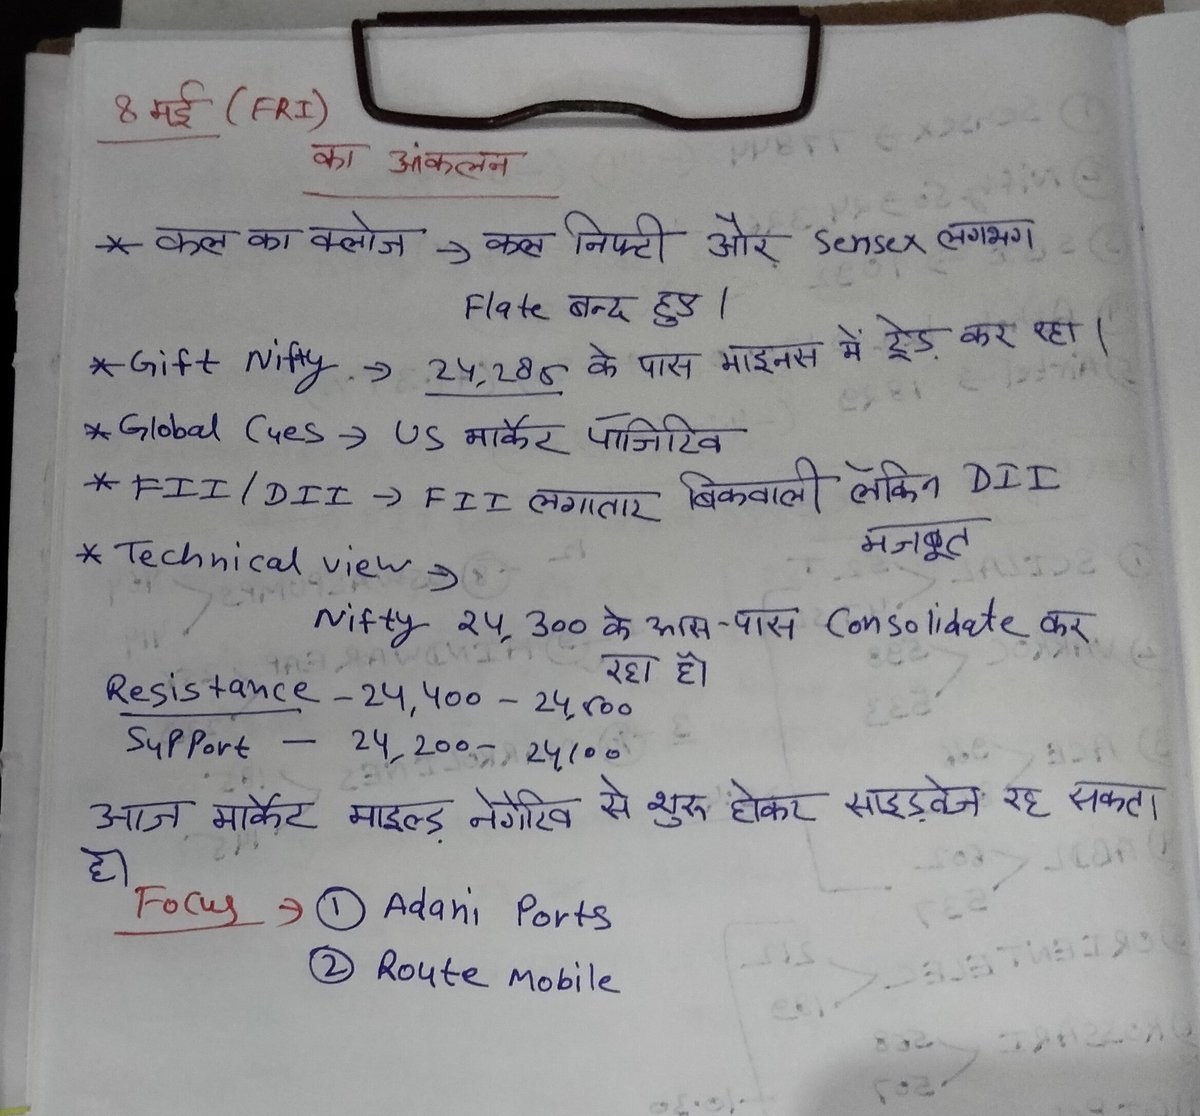 8 मई (FRI)
का आंकलन
* कल का क्लोज → कल निफ्टी और Sensex लगभग
Flate बन्द हुए।
* Gift Nifty → 24,285 के पास माइनस में ट्रेड़ कर रहा।
* Global Cues → US मार्केट पॉजिटिव
* FII/DII → FII लगातार बिकवाली लेकिन DII
मजबूत
* Technical view →
Nifty 24,300 के आस-पास Consolidate कर
रहा है।
Resistance - 24,400 - 24,500
Support - 24,200 - 24,100
आज मार्केट माइल्ड़ नेगेटिव से शुरू होकर साइड़वेज रह सकता
है।
Focus → ① Adani Ports
② Route Mobile